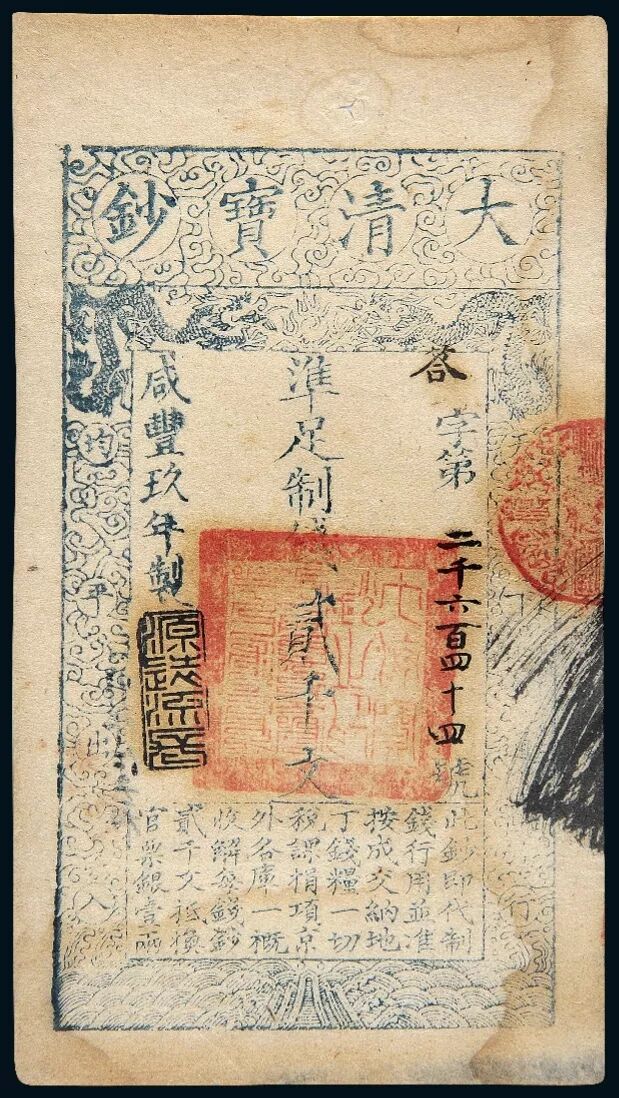 大清寶鈔
答字第二千六百四十四號
準足制錢貳千文
咸豐玖年製
此鈔即代制
錢行用並准
按成交納地
丁錢糧一切
稅課捐項京
外各庫一概
收解每錢鈔
貳千文抵換
官票銀壹兩
均平出入
行
源遠流長